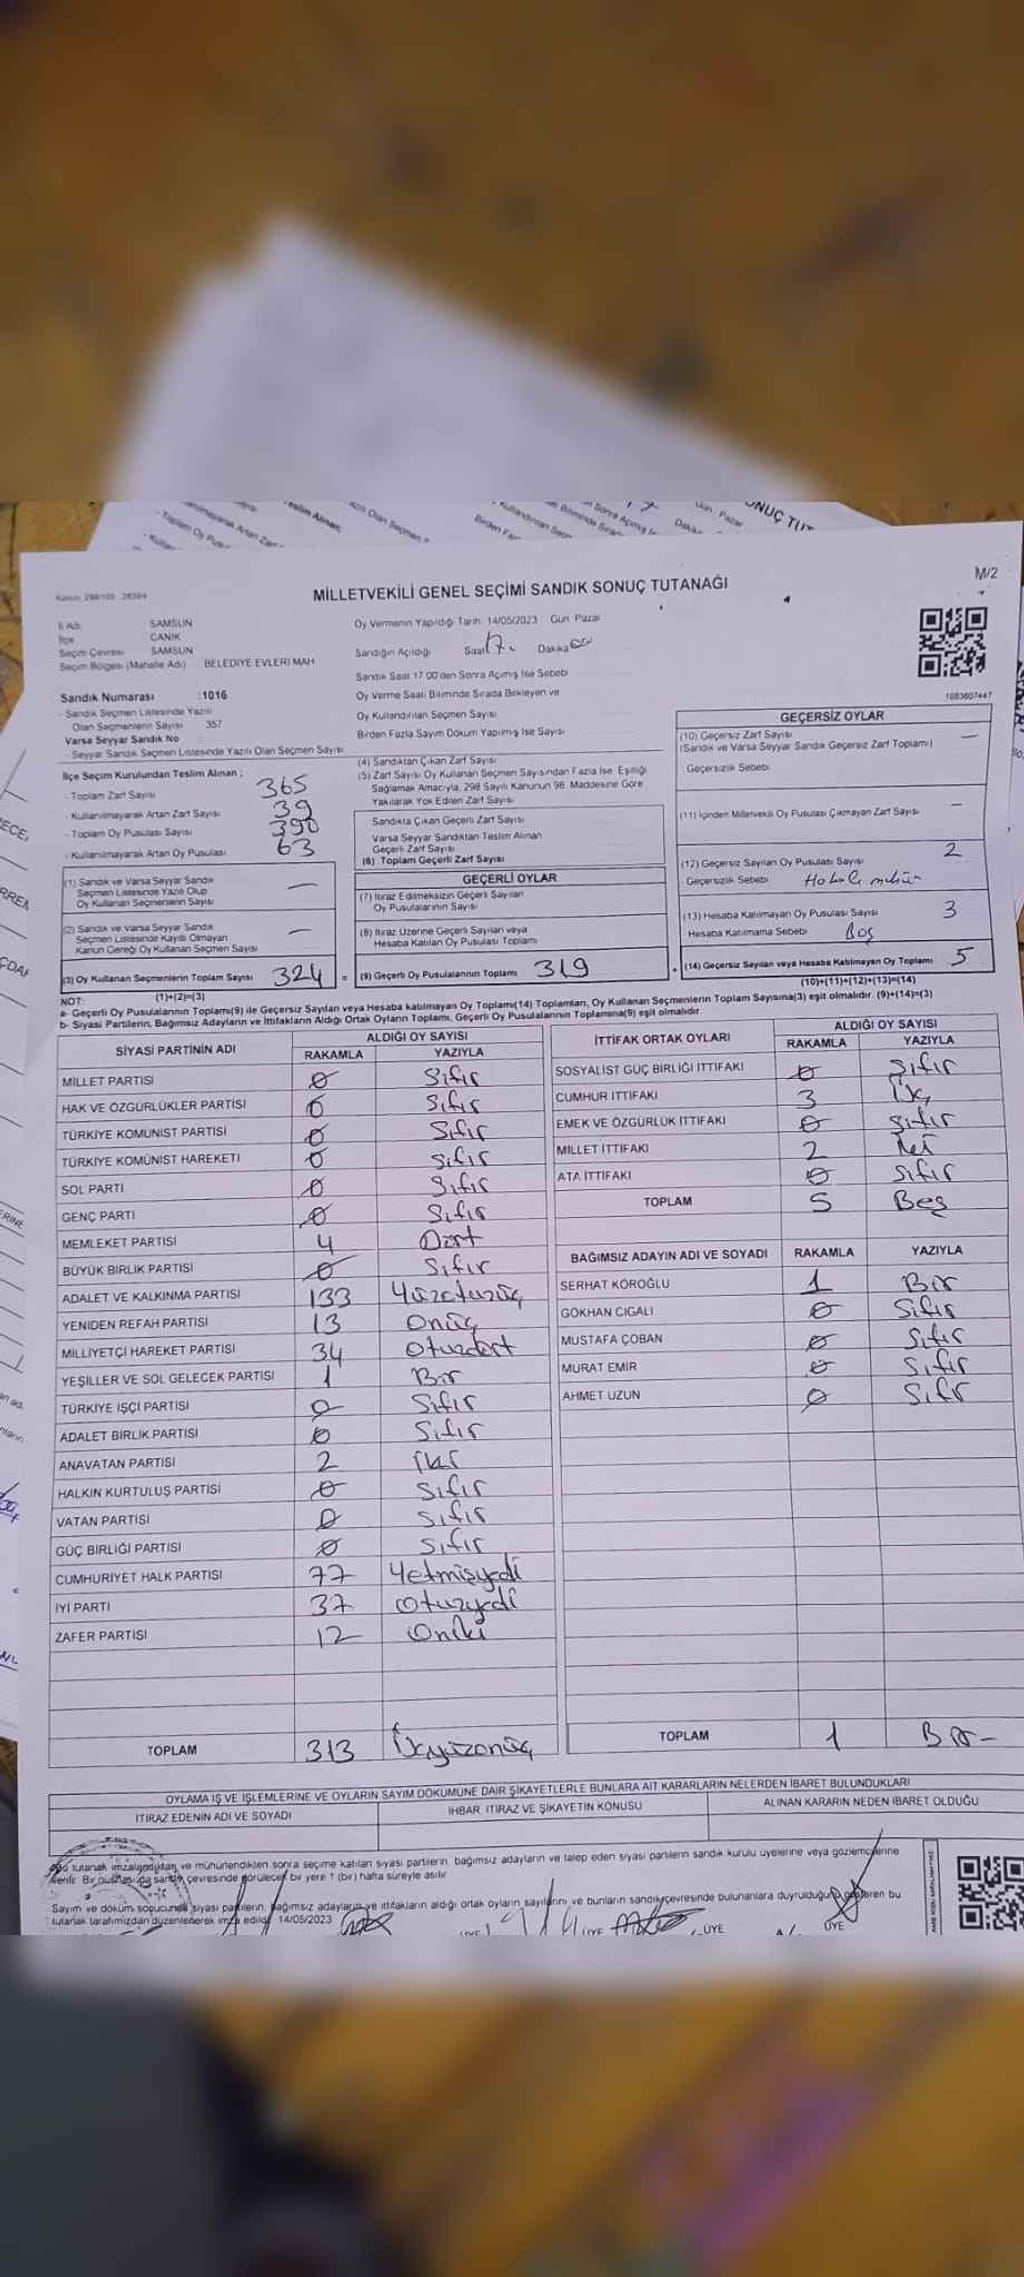 MİLLETVEKİLİ GENEL SEÇİMİ SANDIK SONUÇ TUTANAĞI
M/2
İl Adı SAMSUN
İlçe CANİK
Seçim Çevresi SAMSUN
Seçim Bölgesi (Mahalle Adı) BELEDİYE EVLERİ MAH
Sandık Numarası :1016
- Sandık Seçmen Listesinde Yazılı
Olan Seçmenlerin Sayısı 357
Varsa Seyyar Sandık No
- Seyyar Sandık Seçmen Listesinde Yazılı Olan Seçmen Sayısı
İlçe Seçim Kurulundan Teslim Alınan ;
- Toplam Zarf Sayısı 365
- Kullanılmayarak Artan Zarf Sayısı 39
- Toplam Oy Pusulası Sayısı 390
- Kullanılmayarak Artan Oy Pusulası 63
(1) Sandık ve Varsa Seyyar Sandık
Seçmen Listesinde Yazılı Olup
Oy Kullanan Seçmenlerin Sayısı —
(2) Sandık ve Varsa Seyyar Sandık
Seçmen Listesinde Kayıtlı Olmayan
Kanun Gereği Oy Kullanan Seçmen Sayısı —
(3) Oy Kullanan Seçmenlerin Toplam Sayısı 324 =
(1)+(2)=(3)
Oy Vermenin Yapıldığı Tarih 14/05/2023 Gün Pazar
Sandığın Açıldığı Saat 17. Dakika 00
Sandık Saat 17 00'den Sonra Açımış İse Sebebi
Oy Verme Saati Bitiminde Sırada Bekleyen ve
Oy Kullandırılan Seçmen Sayısı
Birden Fazla Sayım Döküm Yapılmış İse Sayısı
(4) Sandıktan Çıkan Zarf Sayısı
(5) Zarf Sayısı Oy Kullanan Seçmen Sayısından Fazla İse Eşitliği
Sağlamak Amacıyla, 298 Sayılı Kanunun 98. Maddesine Göre
Yakılarak Yok Edilen Zarf Sayısı
Sandıkta Çıkan Geçerli Zarf Sayısı
Varsa Seyyar Sandıktan Teslim Alınan
Geçerli Zarf Sayısı
(6) Toplam Geçerli Zarf Sayısı
GEÇERLİ OYLAR
(7) İtiraz Edilmeksizin Geçerli Sayılan
Oy Pusulalarının Sayısı
(8) İtiraz Üzerine Geçerli Sayılan veya
Hesaba Katılan Oy Pusulası Toplamı
(9) Geçerli Oy Pusulalarının Toplamı 319 +
1083607447
GEÇERSİZ OYLAR
(10) Geçersiz Zarf Sayısı —
(Sandık ve Varsa Seyyar Sandık Geçersiz Zarf Toplamı)
Geçersizlik Sebebi
(11) İçinden Milletvekili Oy Pusulası Çıkmayan Zarf Sayısı —
(12) Geçersiz Sayılan Oy Pusulası Sayısı 2
Geçersizlik Sebebi
(13) Hesaba Katılmayan Oy Pusulası Sayısı 3
Hesaba Katılmama Sebebi Boş
(14) Geçersiz Sayılan veya Hesaba Katılmayan Oy Toplamı 5
(10)+(11)+(12)+(13)=(14)
NOT:
a- Geçerli Oy Pusulalarının Toplamı(9) ile Geçersiz Sayılan veya Hesaba katılmayan Oy Toplamı(14) Toplamları, Oy Kullanan Seçmenlerin Toplam Sayısına(3) eşit olmalıdır. (9)+(14)=(3)
b- Siyasi Partilerin, Bağımsız Adayların ve İttifakların Aldığı Ortak Oyların Toplamı, Geçerli Oy Pusulalarının Toplamına(9) eşit olmalıdır
SİYASİ PARTİNİN ADI ALDIĞI OY SAYISI
RAKAMLA YAZIYLA
MİLLET PARTİSİ 0 Sıfır
HAK VE ÖZGÜRLÜKLER PARTİSİ 0 Sıfır
TÜRKİYE KOMÜNİST PARTİSİ 0 Sıfır
TÜRKİYE KOMÜNİST HAREKETİ 0 Sıfır
SOL PARTİ 0 Sıfır
GENÇ PARTİ 0 Sıfır
MEMLEKET PARTİSİ 4 Dört
BÜYÜK BİRLİK PARTİSİ 0 Sıfır
ADALET VE KALKINMA PARTİSİ 133 Yüzotuzüç
YENİDEN REFAH PARTİSİ 13 Onüç
MİLLİYETÇİ HAREKET PARTİSİ 34 Otuzdört
YEŞİLLER VE SOL GELECEK PARTİSİ 1 Bir
TÜRKİYE İŞÇİ PARTİSİ 0 Sıfır
ADALET BİRLİK PARTİSİ 0 Sıfır
ANAVATAN PARTİSİ 2 İki
HALKIN KURTULUŞ PARTİSİ 0 Sıfır
VATAN PARTİSİ 0 Sıfır
GÜÇ BİRLİĞİ PARTİSİ 0 Sıfır
CUMHURİYET HALK PARTİSİ 77 Yetmişyedi
İYİ PARTİ 37 Otuzyedi
ZAFER PARTİSİ 12 Oniki
TOPLAM 313 Üçyüzonüç
İTTİFAK ORTAK OYLARI ALDIĞI OY SAYISI
RAKAMLA YAZIYLA
SOSYALİST GÜÇ BİRLİĞİ İTTİFAKI 0 Sıfır
CUMHUR İTTİFAKI 3 Üç
EMEK VE ÖZGÜRLÜK İTTİFAKI 0 Sıfır
MİLLET İTTİFAKI 2 İki
ATA İTTİFAKI 0 Sıfır
TOPLAM 5 Beş
BAĞIMSIZ ADAYIN ADI VE SOYADI RAKAMLA YAZIYLA
SERHAT KÖROĞLU 1 Bir
GÖKHAN CIGALI 0 Sıfır
MUSTAFA ÇOBAN 0 Sıfır
MURAT EMİR 0 Sıfır
AHMET UZUN 0 Sıfr
TOPLAM 1 Bir-
OYLAMA İŞ VE İŞLEMLERİNE VE OYLARIN SAYIM DÖKÜMÜNE DAİR ŞİKAYETLERLE BUNLARA AİT KARARLARIN NELERDEN İBARET BULUNDUKLARI
İTİRAZ EDENİN ADI VE SOYADI İHBAR, İTİRAZ VE ŞİKAYETİN KONUSU ALINAN KARARIN NEDEN İBARET OLDUĞU
tutanak imzalandıktan ve mühürlendikten sonra seçime katılan siyasi partilerin, bağımsız adayların ve talep eden siyasi partilerin sandık kurulu üyelerine veya gözlemcilerine
verilir. Bir nüshası da sandık çevresinde görülecek bir yere 1 (bir) hafta süreyle asılır
Sayım ve döküm sonucunda siyasi partilerin, bağımsız adayların ve ittifakların aldığı ortak oyların sayılarını ve bunların sandık çevresinde bulunanlara duyrulduğunu gösteren bu
tutanak tarafımızdan düzenlenerek imza edildi. 14/05/2023
ÜYE ÜYE ÜYE